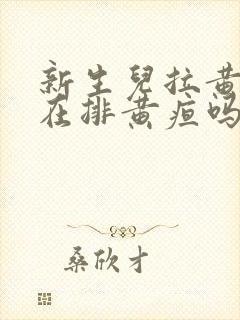 新生兒拉黄
在排黄疸吗
桑欣才